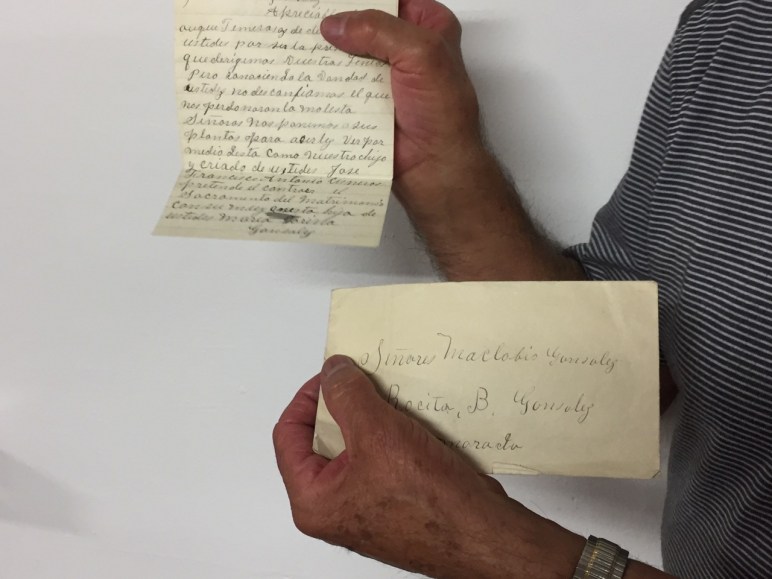 Apreciab
aunque Temerosos de de
ustedes por ser la pri
que dirigimos Nuestras
Pero conosiendo la Bondad de
ustedes no desconfiamos el que
nos perdonaran la molesta
Señores Nos ponemos a sus
plantas para aserles Ver por
medio desta Como nuestro hijo
y criado de ustedes Jose
Francisco Antonio Cisneros
pretende el contraer el
Sacramento del Matrimonio
con su muy hija de
ustedes Maria
Gonzalez
Señores Maclobio Gonzalez
Rocita, B. Gonzalez